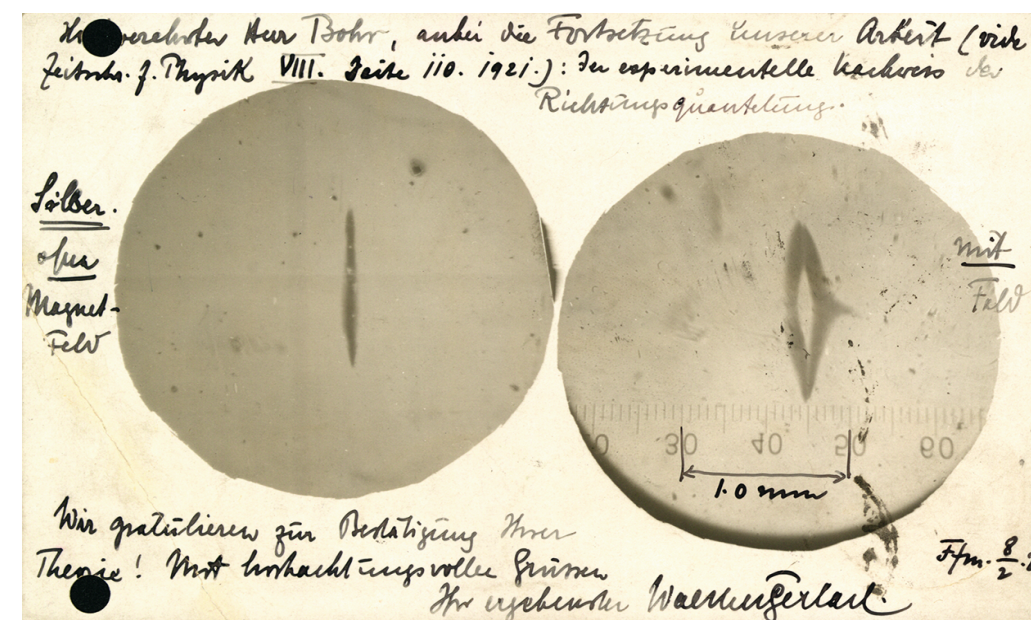 verehrter Herr Bohr, anbei die Fortsetzung unserer Arbeit (vide
Zeitschr. f. Physik VIII. Seite 110. 1921.): Der experimentelle Nachweis der
Richtungsquantelung.
Silber.
ohne
Magnet-
Feld
mit
Feld
30 40 50 60
1.0 mm
Wir gratulieren zur Bestätigung Ihrer
Theorie! Mit hochachtungsvollen Grüssen
Ihr ergebenster Walther Gerlach.
Ffm. 8/2